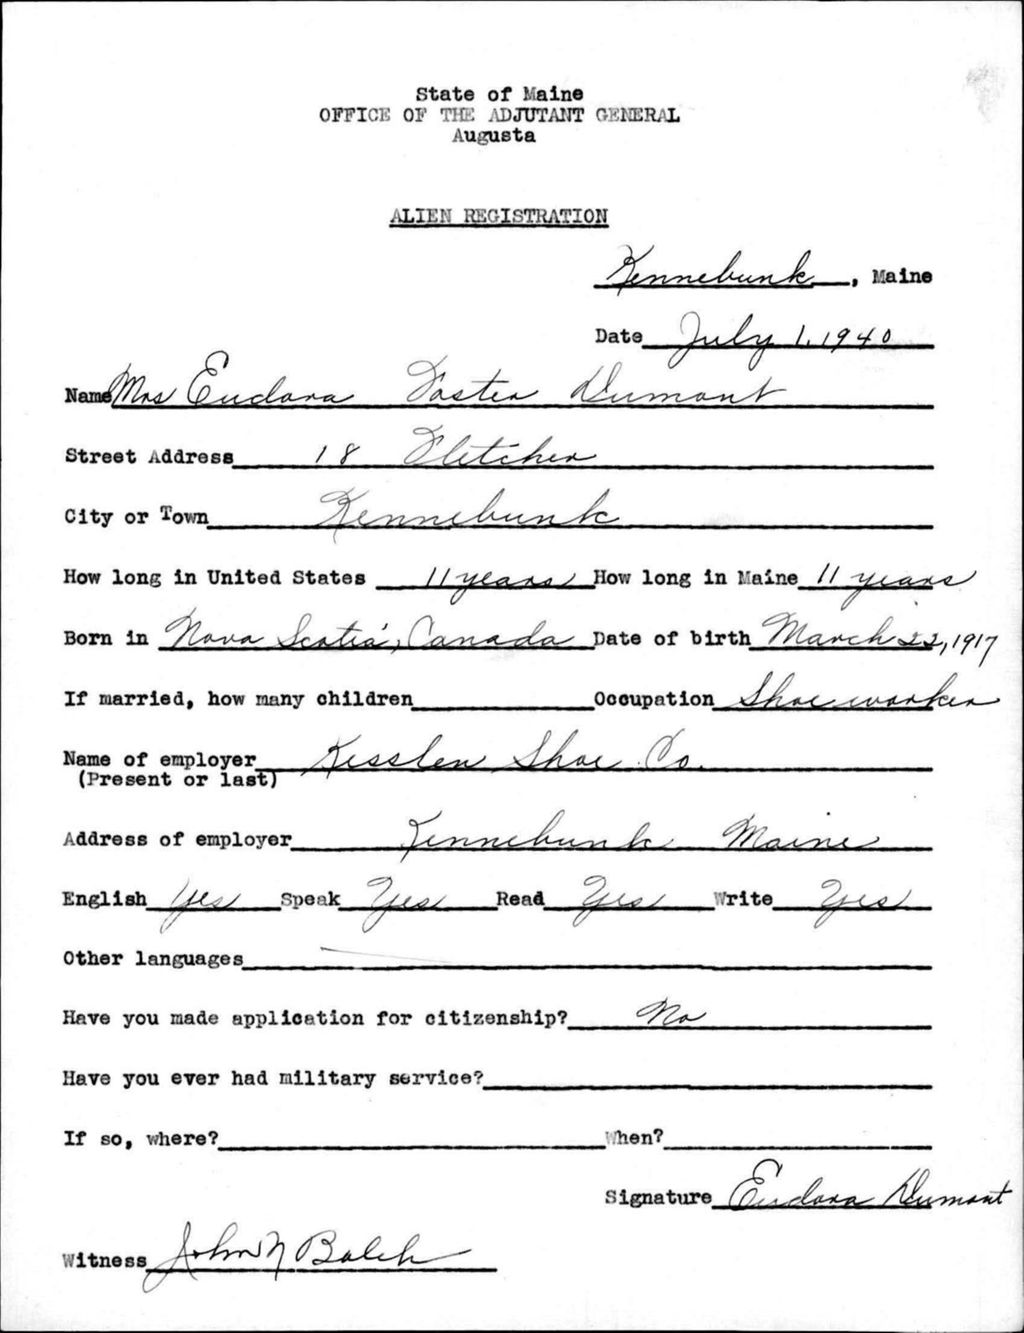 State of Maine
OFFICE OF THE ADJUTANT GENERAL
Augusta
ALIEN REGISTRATION
Kennebunk, Maine
Date July 1, 1940
Name Mrs Eudora Foster Dumont
Street Address 18 Fletcher
City or Town Kennebunk
How long in United States 11 years How long in Maine 11 years
Born in Nova Scotia, Canada Date of birth March 22, 1917
If married, how many children Occupation Shoe worker
Name of employer Kesslen Shoe Co.
(Present or last)
Address of employer Kennebunk Maine
English Yes Speak Yes Read Yes Write Yes
Other languages
Have you made application for citizenship? No
Have you ever had military service?
If so, where? When?
Signature Eudora Dumont
Witness John N Balch